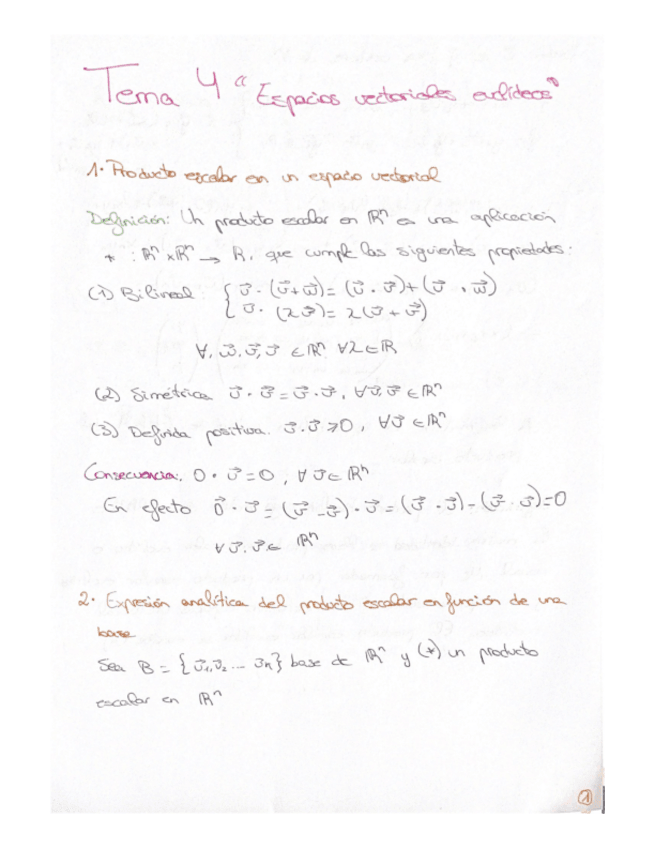 Tema 4 "Espacios vectoriales euclídeos"
1. Producto escalar en un espacio vectorial
Definición: Un producto escalar en ℝⁿ es una aplicación
* : ℝⁿ×ℝⁿ → ℝ, que cumple las siguientes propiedades:
(1) Bilineal: { u⃗ · (v⃗+w⃗) = (u⃗ · v⃗)+(u⃗ · w⃗)
u⃗ · (λv⃗) = λ(u⃗ + v⃗)
∀, w⃗, v⃗, u⃗ ∈ ℝⁿ ∀λ∈ℝ
(2) Simétrica u⃗ · v⃗ = v⃗ · u⃗, ∀u⃗,v⃗ ∈ℝⁿ
(3) Definida positiva. u⃗ · u⃗ ≥0, ∀u⃗ ∈ℝⁿ
Consecuencia: 0 · v⃗ = 0, ∀ v⃗∈ ℝⁿ
En efecto 0⃗ · u⃗ = (v⃗ - v⃗) · u⃗ = (v⃗ · u⃗) - (v⃗ · u⃗)=0
∀ u⃗, v⃗∈ ℝⁿ
2. Expresión analítica del producto escalar en función de una
base
Sea B = {u⃗₁,u⃗₂ ... u⃗ₙ} base de ℝⁿ y (*) un producto
escalar en ℝⁿ
1